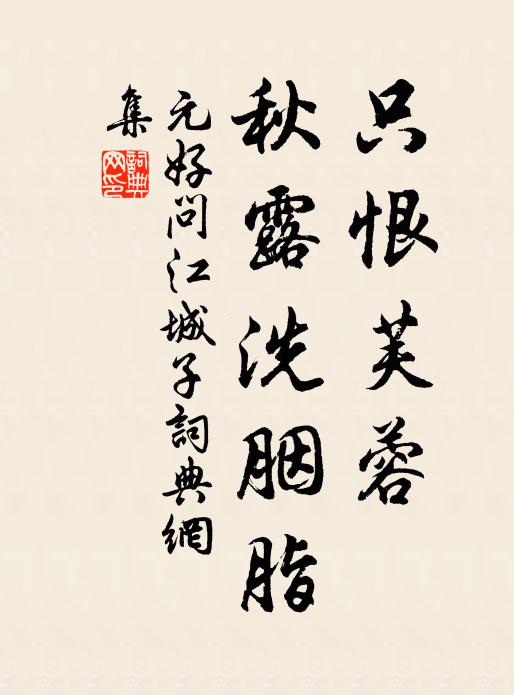 只恨芙蓉
秋露洗胭脂
元好问江城子詞典網
集
詞典
网印